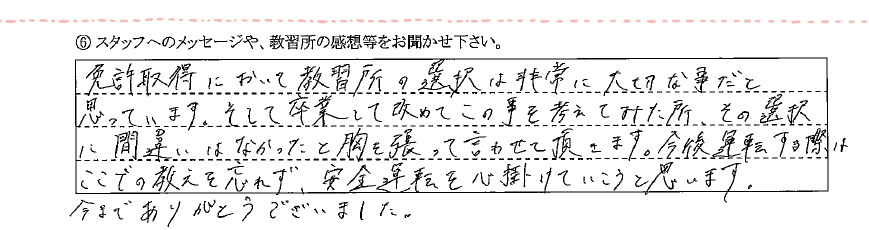 ⑥ スタッフへのメッセージや、教習所の感想等をお聞かせ下さい。
免許取得において教習所の選択は非常に大切な事だと
思っています。そして卒業して改めてこの事を考えてみた所、その選択
に間違いはなかったと胸を張って言わせて頂きます。今後運転する際は
ここでの教えを忘れず、安全運転を心掛けていこうと思います。
今までありがとうございました。